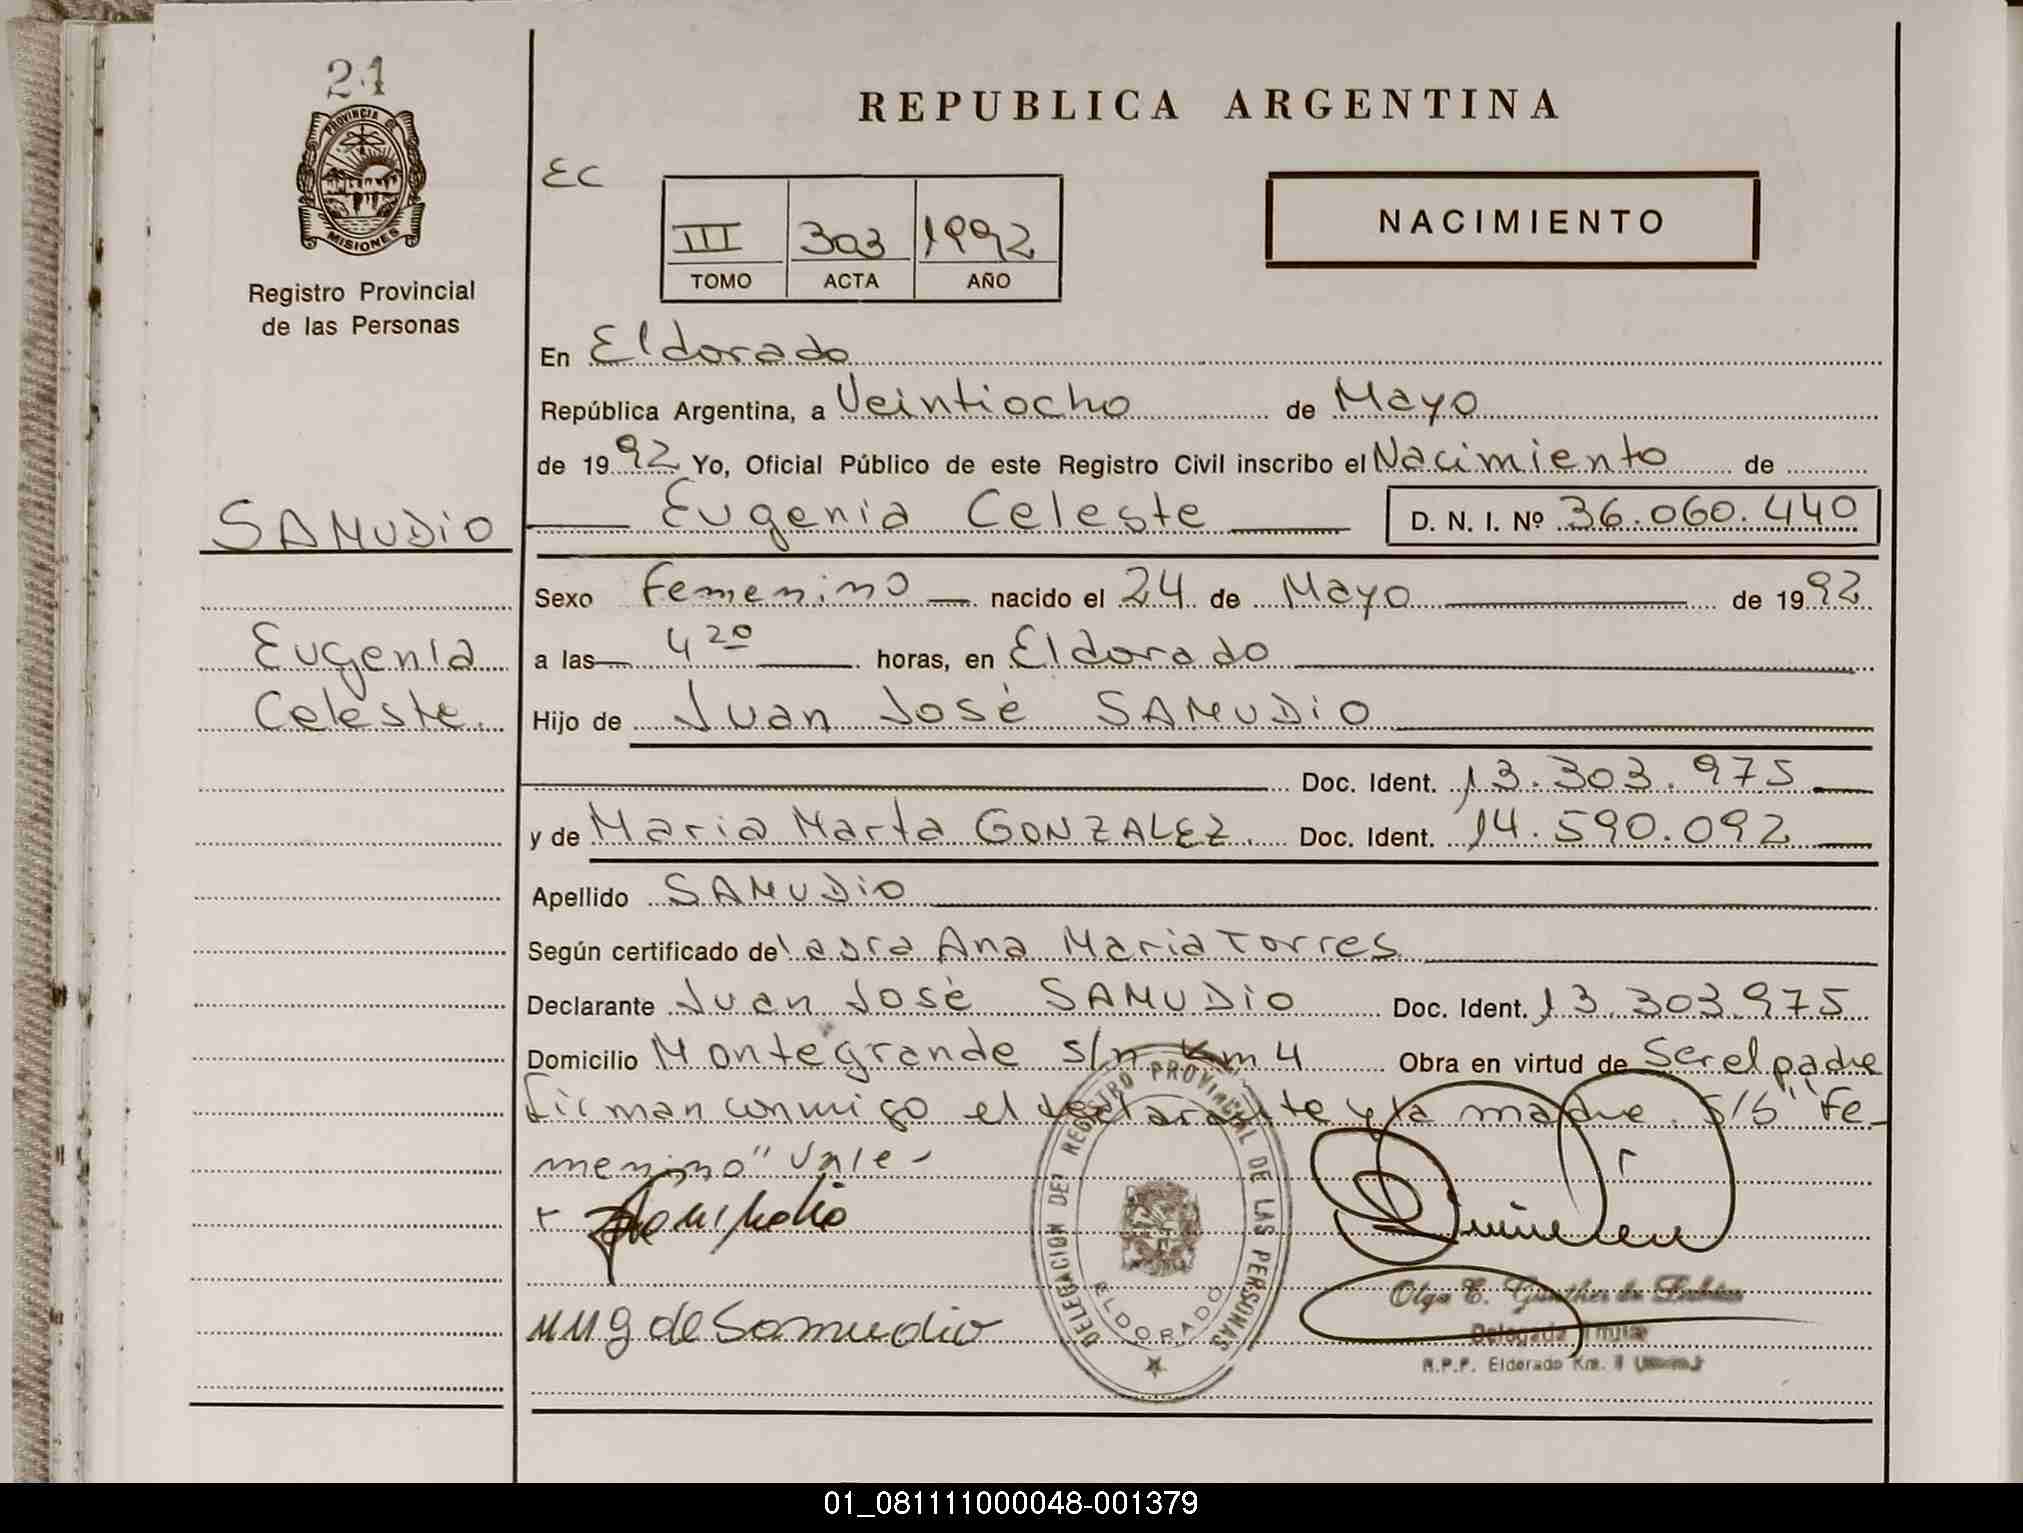 21
PROVINCIA DE
MISIONES
Registro Provincial
de las Personas
SAMUDIO
Eugenia
Celeste.
REPUBLICA ARGENTINA
EC
III 303 1992
TOMO ACTA AÑO
NACIMIENTO
En Eldorado
República Argentina, a Veintiocho de Mayo
de 1992 Yo, Oficial Público de este Registro Civil inscribo el Nacimiento de
Eugenia Celeste D. N. I. Nº 36.060.440
Sexo Femenino nacido el 24 de Mayo de 1992
a las 4 20 horas, en Eldorado
Hijo de Juan José SAMUDIO
Doc. Ident. 13.303.975
y de Maria Marta GONZALEZ. Doc. Ident. 14.590.092
Apellido SAMUDIO
Según certificado de la Dra Ana Maria Torres
Declarante Juan José SAMUDIO Doc. Ident. 13.303.975
Domicilio Montegrande s/n Km 4 Obra en virtud de Ser el padre
firman conmigo el declarante y la madre. S/b "Fe-
menino" Vale-
mmg de Samudio
DELEGACION DEL REGISTRO PROVINCIAL DE LAS PERSONAS
ELDORADO
Olga E. Günther de
Delegada Titular
R.P.P. Eldorado Km.
01_081111000048-001379